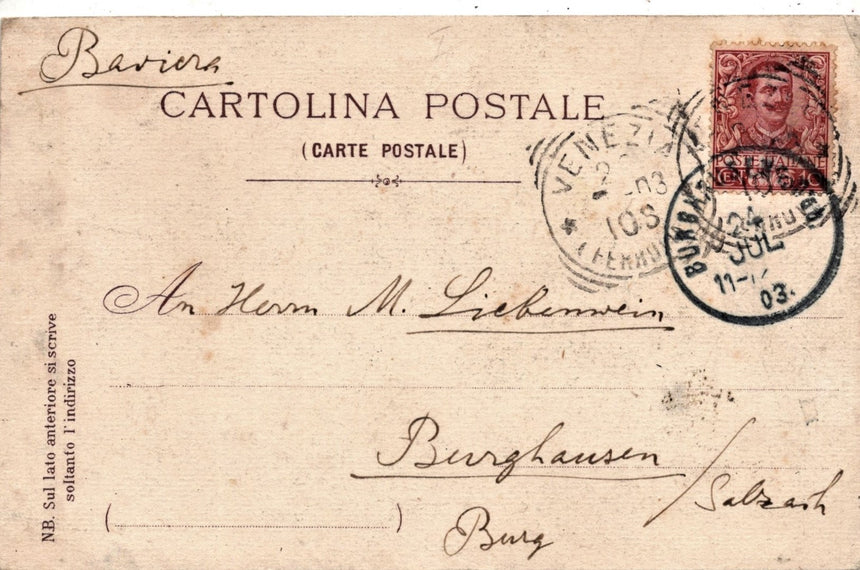 Baviera
CARTOLINA POSTALE
(CARTE POSTALE)
POSTE ITALIANE
VENEZIA
03
10S
BURGHAUSEN
24
JUL
11-12
03.
An Herrn M. Liebenwein
Burghausen / Salzach
Burg
N.B. Sul lato anteriore si scrive
soltanto l'indirizzo